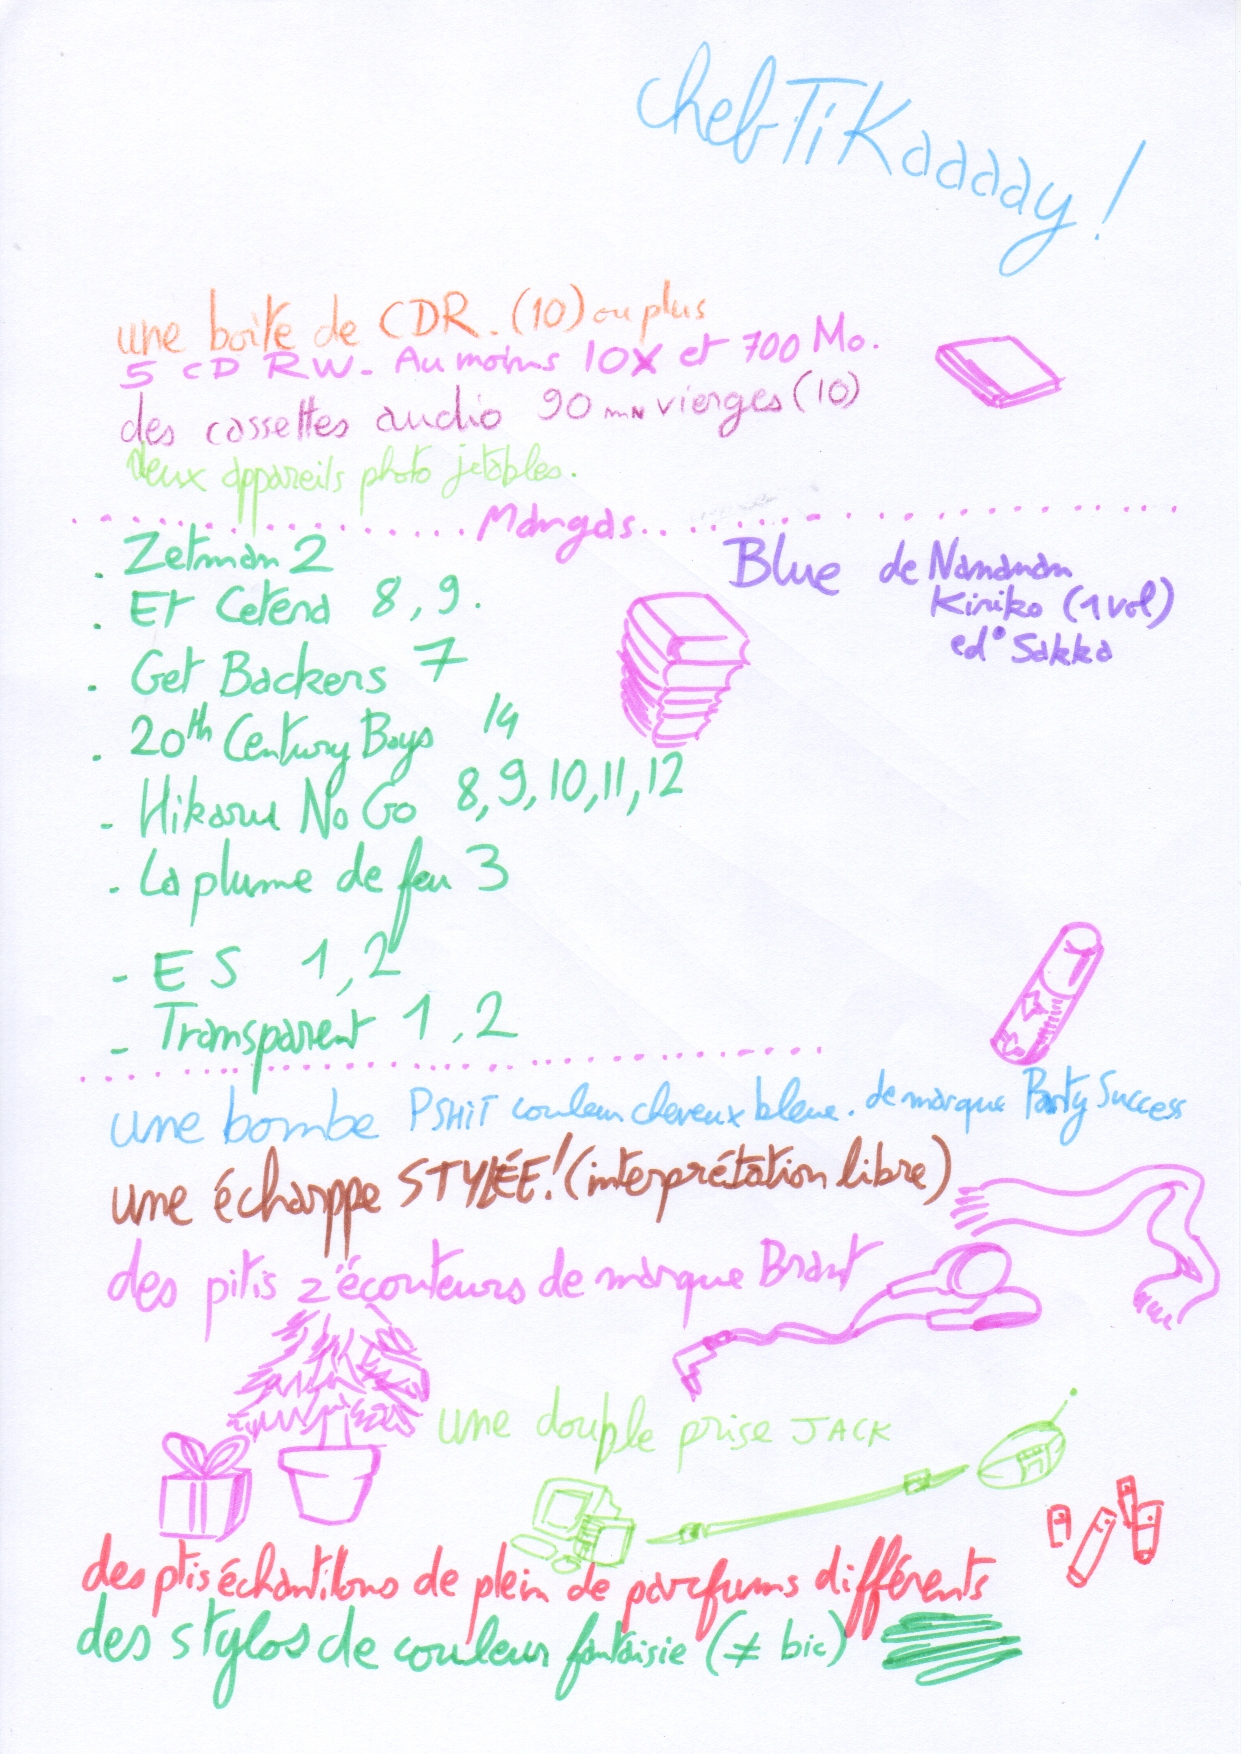 chebTiKaaaay !
une boîte de CDR. (10) ou plus
5 CD RW. Au moins 10X et 700 Mo.
des cassettes audio 90 mN vierges (10)
deux appareils photo jetables.
Mangas
. Zetman 2
. Et Cetera 8, 9.
. Get Backers 7
. 20th Century Boys 14
- Hikaru No Go 8, 9, 10, 11, 12
. La plume de feu 3
- E S 1, 2
- Transparent 1, 2
Blue de Nananan
Kiriko (1 vol)
ed° Sakka
une bombe PSHiT couleur cheveux bleue. de marque Party Success
une écharppe STYLÉE! (interprétation libre)
des pitis z'écouteurs de marque Brant
une double prise JACK
des ptis échantilons de plein de parfums différents
des stylos de couleur fantaisie (≠ bic)